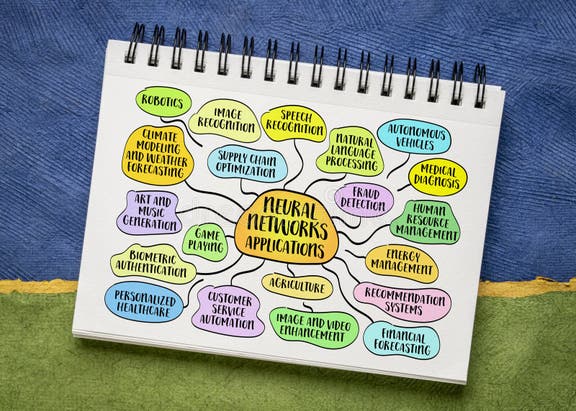 ROBOTICS
IMAGE
RECOGNITION
SPEECH
RECOGNITION
AUTONOMOUS
VEHICLES
CLIMATE
MODELING
AND WEATHER
FORECASTING
SUPPLY CHAIN
OPTIMIZATION
NATURAL
LANGUAGE
PROCESSING
MEDICAL
DIAGNOSIS
ART AND
MUSIC
GENERATION
FRAUD
DETECTION
NEURAL
NETWORKS
APPLICATIONS
HUMAN
RESOURCE
MANAGEMENT
GAME
PLAYING
BIOMETRIC
AUTHENTICATION
ENERGY
MANAGEMENT
AGRICULTURE
PERSONALIZED
HEALTHCARE
CUSTOMER
SERVICE
AUTOMATION
IMAGE AND VIDEO
ENHANCEMENT
RECOMMENDATION
SYSTEMS
FINANCIAL
FORECASTING